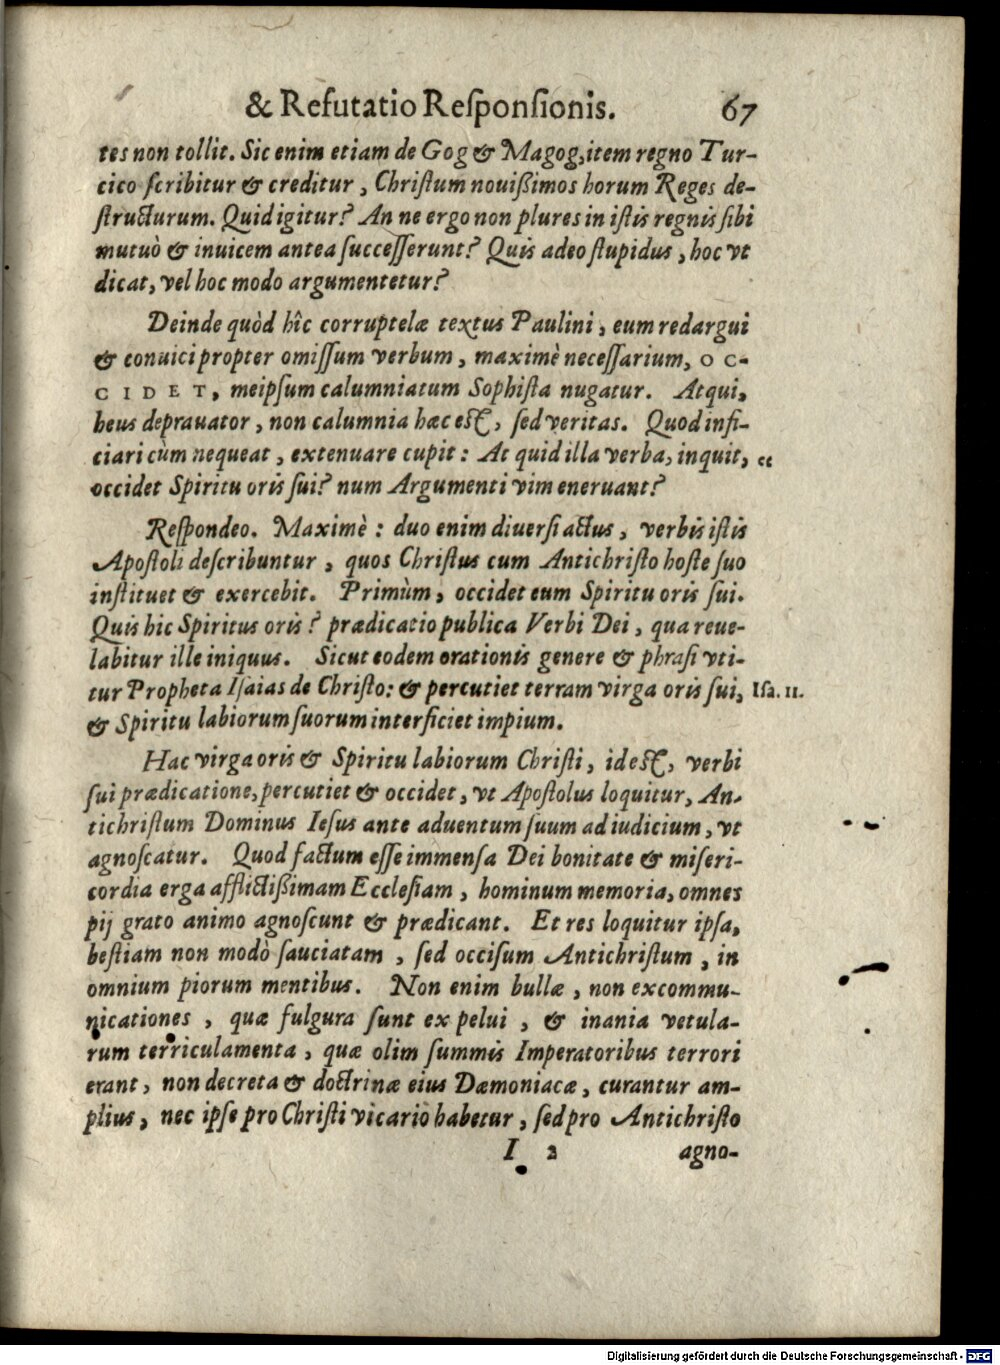 & Refutatio Reſponſionis. 67
tes non tollit. Sic enim etiam de Gog & Magog, item regno Tur-
cico ſcribitur & creditur, Chriſtum nouißimos horum Reges de-
ſtructurum. Quid igitur? An ne ergo non plures in iſtis regnis ſibi
mutuò & inuicem antea ſucceſſerunt? Quis adeo ſtupidus, hoc vt
dicat, vel hoc modo argumentetur?
Deinde quòd hîc corruptelæ textus Paulini, eum redargui
& conuici propter omiſſum verbum, maximè neceſſarium, OC-
CIDET, meipſum calumniatum Sophiſta nugatur. Atqui,
heus deprauator, non calumnia hæc eſt, ſed veritas. Quod infi-
ciari cùm nequeat, extenuare cupit: At quid illa verba, inquit, „
occidet Spiritu oris ſui? num Argumenti vim eneruant?
Reſpondeo. Maximè: duo enim diuerſi actus, verbis iſtis
Apoſtoli deſcribuntur, quos Chriſtus cum Antichriſto hoſte ſuo
inſtituet & exercebit. Primùm, occidet eum Spiritu oris ſui.
Quis hic Spiritus oris? prædicatio publica Verbi Dei, qua reue-
labitur ille iniquus. Sicut eodem orationis genere & phraſi vti-
tur Propheta Iſaias de Chriſto: & percutiet terram virga oris ſui, Iſa. 11.
& Spiritu labiorum ſuorum interficiet impium.
Hac virga oris & Spiritu labiorum Chriſti, id eſt, verbi
ſui prædicatione, percutiet & occidet, vt Apoſtolus loquitur, An-
tichriſtum Dominus Ieſus ante aduentum ſuum ad iudicium, vt
agnoſcatur. Quod factum eſſe immenſa Dei bonitate & miſeri-
cordia erga afflictißimam Eccleſiam, hominum memoria, omnes
pij grato animo agnoſcunt & prædicant. Et res loquitur ipſa,
beſtiam non modò ſauciatam, ſed occiſum Antichriſtum, in
omnium piorum mentibus. Non enim bullæ, non excommu-
nicationes, quæ fulgura ſunt ex pelui, & inania vetula-
rum terriculamenta, quæ olim ſummis Imperatoribus terrori
erant, non decreta & doctrinæ eius Dæmoniacæ, curantur am-
plius, nec ipſe pro Chriſti vicario habetur, ſed pro Antichriſto
I 2 agno-
Digitalisierung gefördert durch die Deutsche Forschungsgemeinschaft - DFG